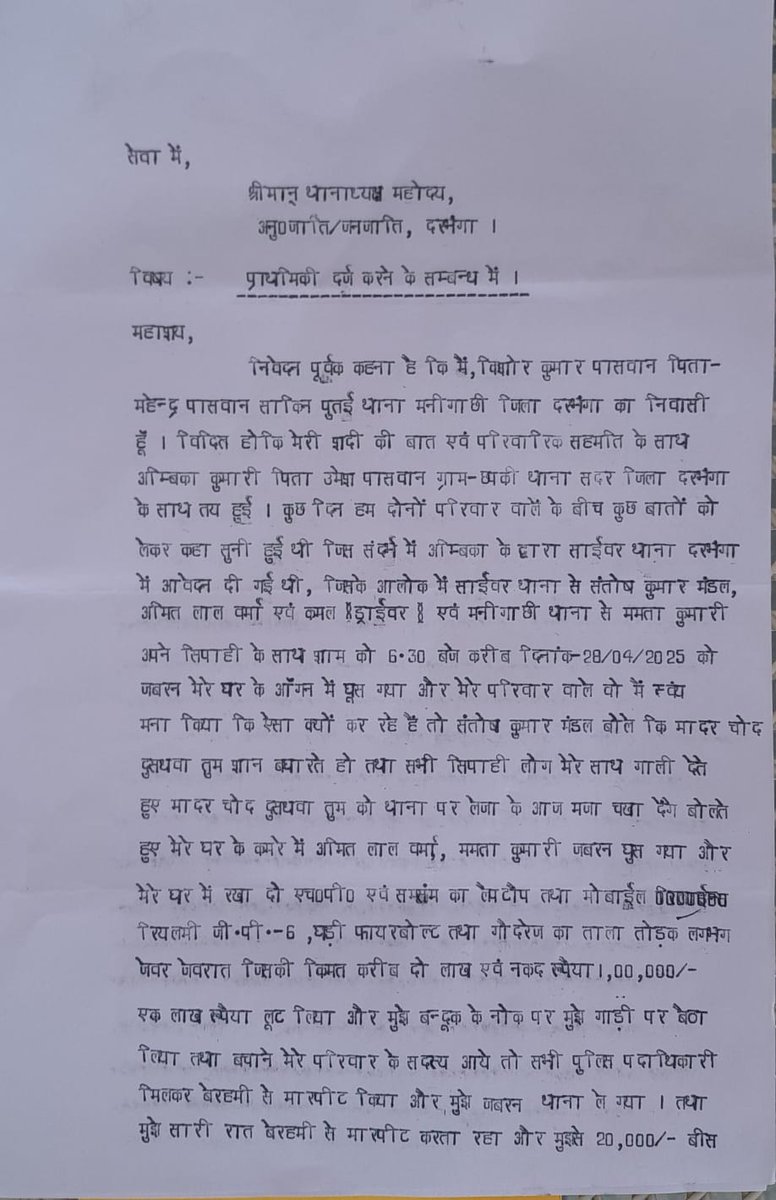 सेवा में,
श्रीमान् थानाध्यक्ष महोदय,
अनु0जाति/जनजाति, दरभंगा ।
विषय :- प्राथमिकी दर्ज करने के सम्बन्ध में ।
महाशय,
निवेदन पूर्वक कहना है कि मैं, किशोर कुमार पासवान पिता-
महेन्द्र पासवान साकिन पुतई थाना मनीगाछी जिला दरभंगा का निवासी
हूँ । विदित होकि मेरी शादी की बात एवं परिवारिक सहमति के साथ
अम्बिका कुमारी पिता उमेश पासवान ग्राम-छपकी थाना सदर जिला दरभंगा
के साथ तय हुई । कुछ दिन हम दोनों परिवार वालें के बीच कुछ बातों को
लेकर कहा सुनी हुई थी जिस संदर्भ में अम्बिका के द्वारा साईवर थाना दरभंगा
में आवेदन दी गई थी, जिसके आलोक में साईवर थाना से संतोष कुमार मंडल,
अमित लाल वर्मा एवं कमल ड्राईवर एवं मनीगाछी थाना से ममता कुमारी
अपने सिपाही के साथ शाम को 6.30 बजे करीब दिनांक-28/04/2025 को
जबरन मेरे घर के आँगन में घूस गया और मेरे परिवार वाले वो मैं स्वंय
मना किया कि ऐसा क्यों कर रहे हैं तो संतोष कुमार मंडल बोले कि मादर चोद
दुसधवा तुम शान बघारते हो तथा सभी सिपाही लोग मेरे साथ गाली देते
हुए मादर चोद दुसधवा तुम को थाना पर लेजा के आज मजा चखा देंगे बोलते
हुए मेरे घर के कमरे में अमित लाल वर्मा, ममता कुमारी जबरन घुस गया और
मेरे घर में रखा दो एच0पी0 एवं समसंग का लेपटौप तथा मोबाईल
रियलमी जी.पी.-6 ,घड़ी फायरबोल्ट तथा गौदरेज का ताला तोड़क लगभग
जेवर जेवरात जिसकी किमत करीब दो लाख एवं नकद रूपैया 1,00,000/-
एक लाख रूपैया लूट लिया और मुझे बन्दूक के नोक पर मुझे गाड़ी पर बैठा
लिया तथा बचाने मेरे परिवार के सदस्य आये तो सभी पुलिस पदाधिकारी
मिलकर बेरहमी से मारपीट किया और मुझे जबरन थाना ले गया । तथा
मुझे सारी रात बेरहमी से मारपीट करता रहा और मुझसे 20,000/- बीस